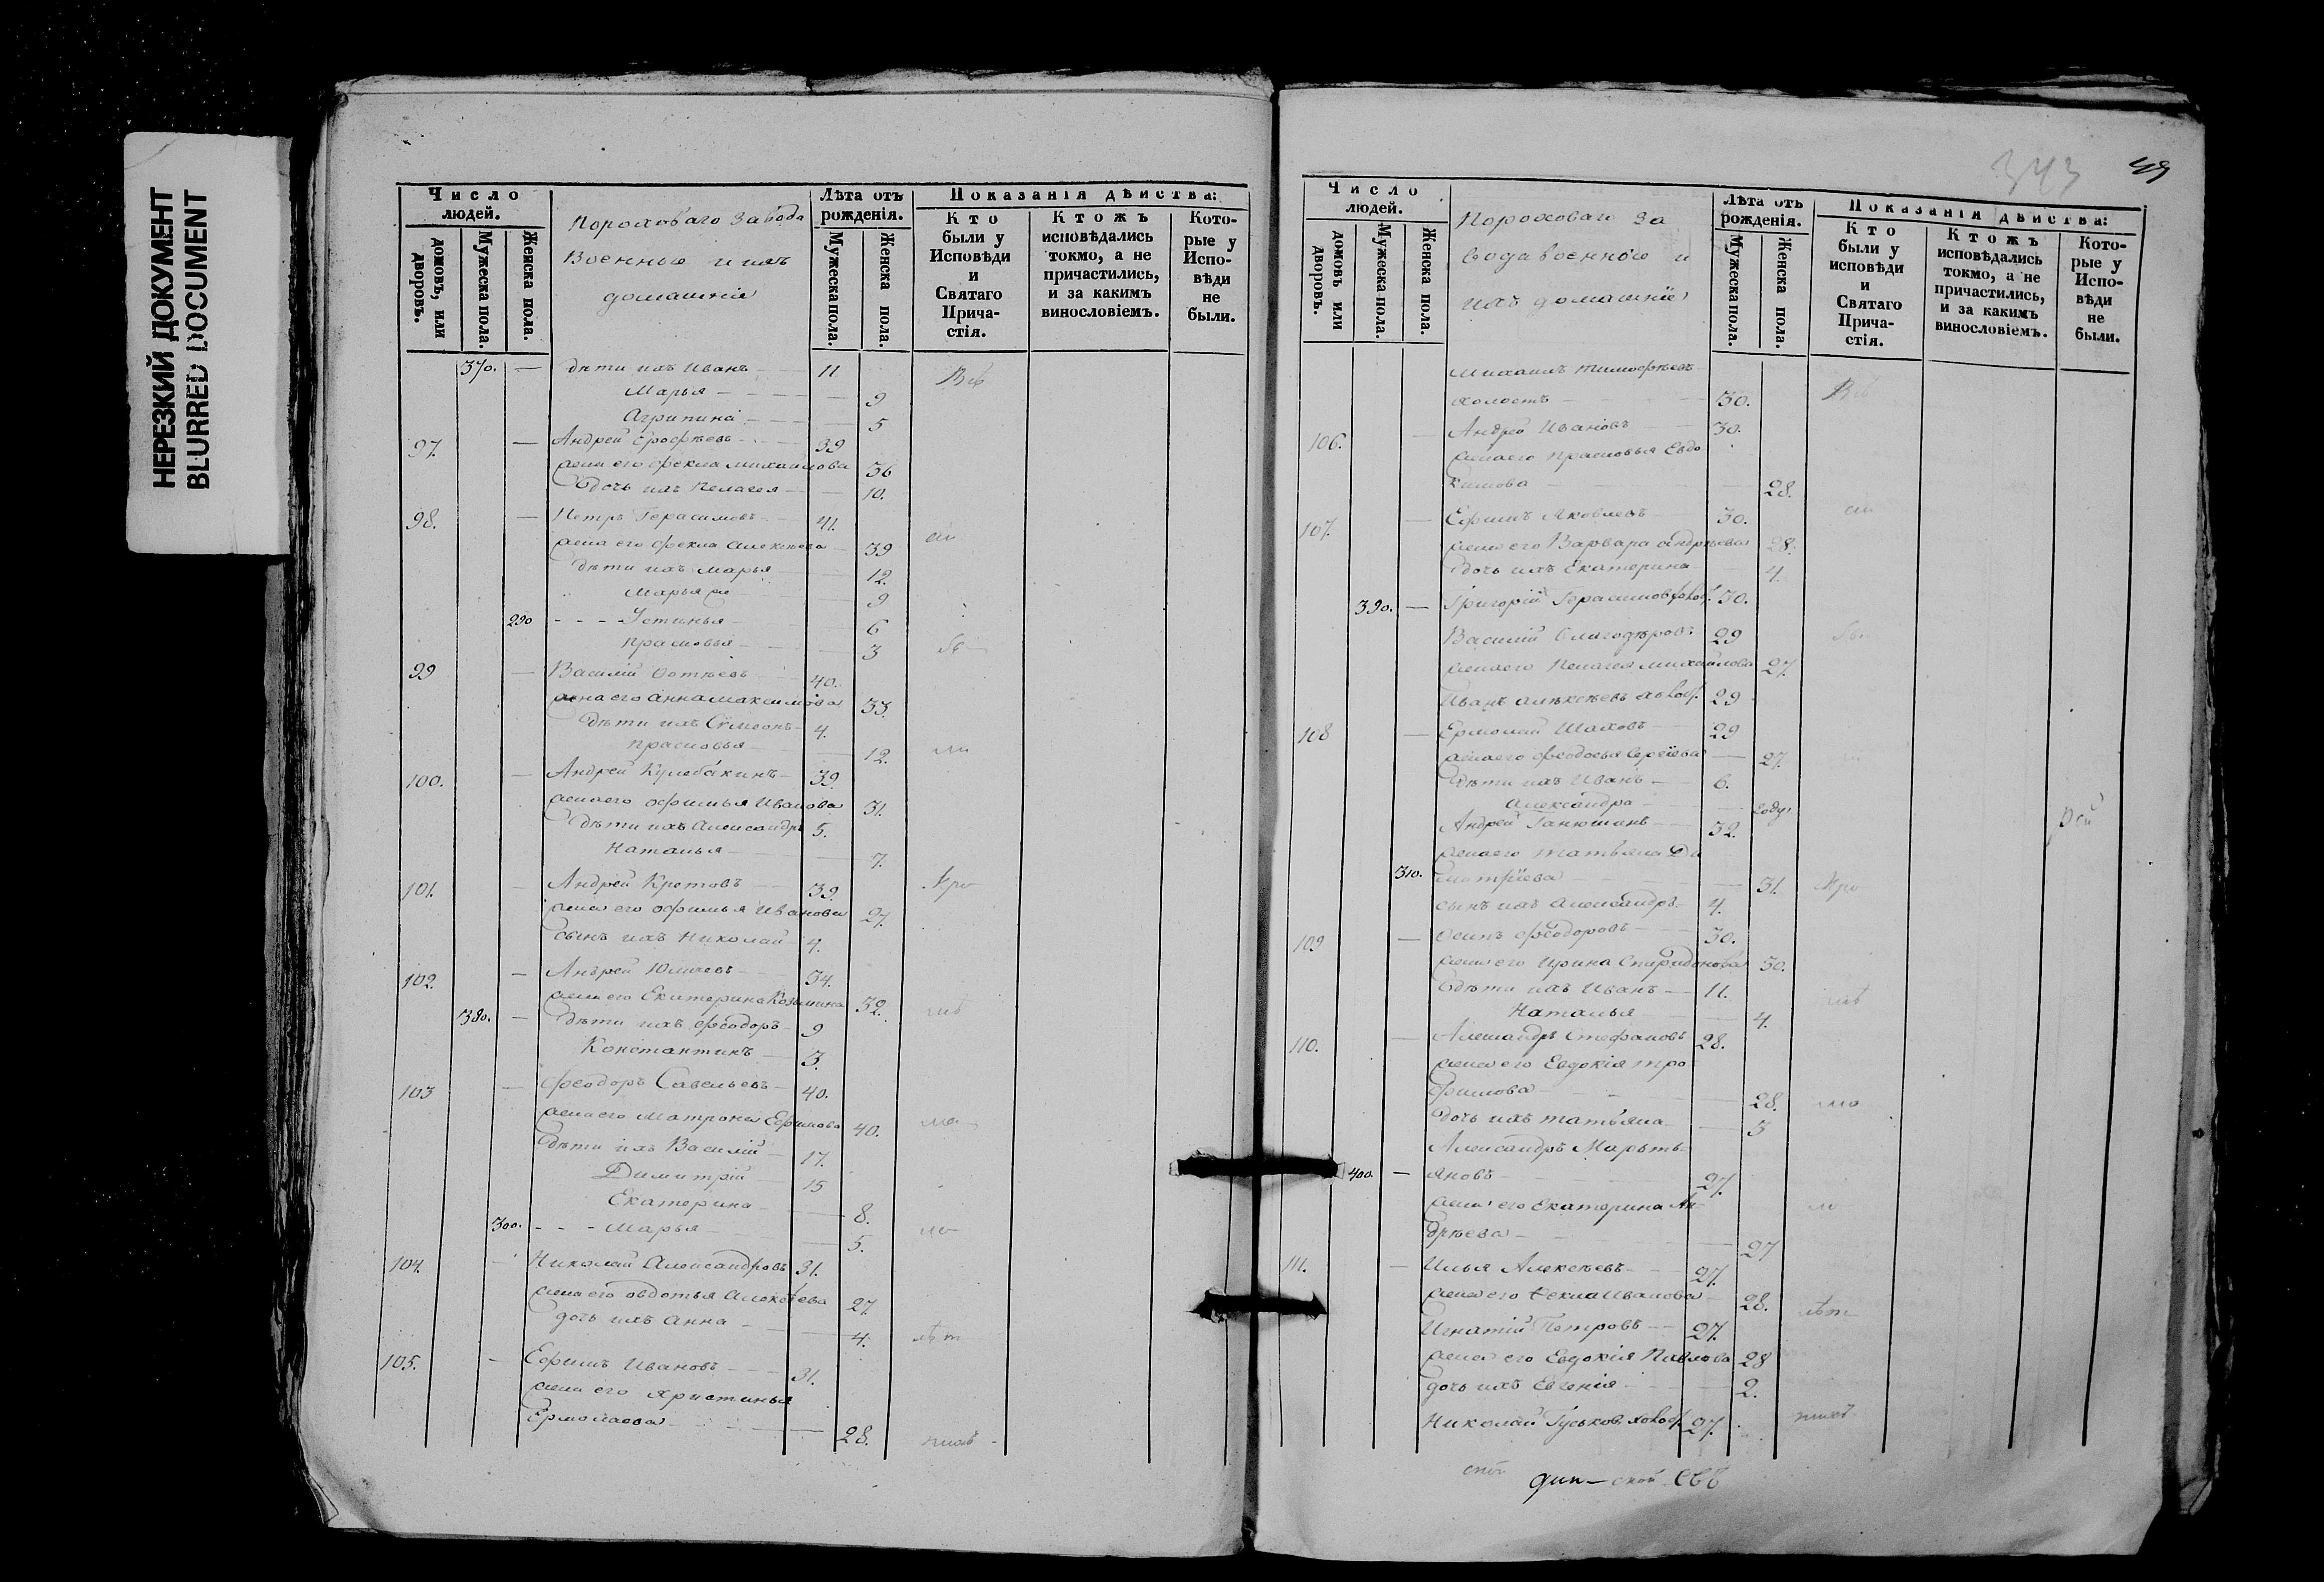 НЕРЕЗКИЙ ДОКУМЕНТ
BLURRED DOCUMENT
Число людей.
домовъ, или дворовъ.
Мужеска пола.
Женска пола.
Пороховаго завода
Военныя и ихъ
домашніе
Лѣта отъ рожденія.
Мужеска пола.
Женска пола.
Показанія дѣйства:
Кто были у Исповѣди и Святаго Прича-стія.
Ктожъ исповѣдались токмо, а не причастились, и за какимъ винословіемъ.
Кото-рые у Испо-вѣди не были.
370. — дѣти ихъ Иванъ — 11 Всѣ
Марья — 9
Агрипина — 5
97. — Андрей Ерофѣевъ — 39
жена его Фекла Михайлова 36
дочь ихъ Пелагея — 10.
98. — Петръ Герасимовъ — 41.
жена его Фекла Алексѣева — 39
дѣти ихъ Марья 12.
Марья 9
290 - - - Устинья — 6
Прасковья — 3
99 — Василій 40.
жена его Анна Максимова 33.
дѣти ихъ Сѵмеонъ — 4.
Прасковья — 12.
100. — Андрей Кулебакинъ — 39.
жена его Офимья Иванова 31.
дѣти ихъ Александръ 5.
Наталья — 7.
101. — Андрей Кретовъ — 39.
жена его Офимья Иванова 27.
сынъ ихъ Николай 4.
102. — Андрей 34.
жена его Екатерина Козьмина 32.
380. — дѣти ихъ Феодоръ — 9
Константинъ — 3.
103 — Феодоръ Савельевъ — 40.
жена его Матрона Ефимова 40.
дѣти ихъ Василій — 17.
Димитрій — 15
Екатерина — 8.
300. - - - Марья — 5.
104. — Николай Александровъ 31.
жена его Овдотья Алексѣева 27.
дочь ихъ Анна — 4.
105. — Ефимъ Ивановъ — 31.
жена его Христинья
Ермолаева — 28.
343
49
Число людей.
домовъ или дворовъ.
Мужеска пола.
Женска пола.
Пороховаго за
вода военные и
ихъ домашніе
Лѣта отъ рожденія.
Мужеска пола.
Женска пола.
Показанія дѣйства:
Кто были у исповѣди и Святаго Прича-стія.
Ктожъ исповѣдались токмо, а не причастились, и за какимъ винословіемъ.
Кото-рые у Испо-вѣди не были.
Михаилъ Тимофѣевъ
холостъ — 30. Всѣ
106. — Андрей Ивановъ — 30.
жена его Прасковья Евдо
кимова — 28.
107. — Ефимъ Яковлевъ — 30.
жена его Варвара Андрѣева 28.
дочь ихъ Екатерина 4.
390. — Григорій Герасимовъ холос. 30.
Василій 29
жена его Пелагея Михайлова 27.
Иванъ Алексѣевъ холос. 29
108 — Ермолай Шаховъ — 29
жена его Феодосья Сергіева — 27.
дѣти ихъ Иванъ — 6.
Александра — году
Андрей Ганюшинъ — 32.
жена его Татьяна Ди
310. митріева — 31.
сынъ ихъ Александръ — 4.
109 — Осипъ Феодоровъ — 30.
жена его Ирина Спиридонова 30.
дѣти ихъ Иванъ — 11.
Наталья — 4.
110. — Александръ Стефановъ 28.
жена его Евдокія Тро
фимова — 28.
дочь ихъ Татьяна — 3
Александръ Марть
400. — яновъ — 27.
жена его Екатерина Ан-
дрѣева — 27
111. — Илья Алексѣевъ — 27.
жена его Фекла Иванова 28.
Игнатій Петровъ — 27.
жена его Евдокія Павлова 28
дочь ихъ Евгенія — 2.
Николай Гуськов холос. 27.